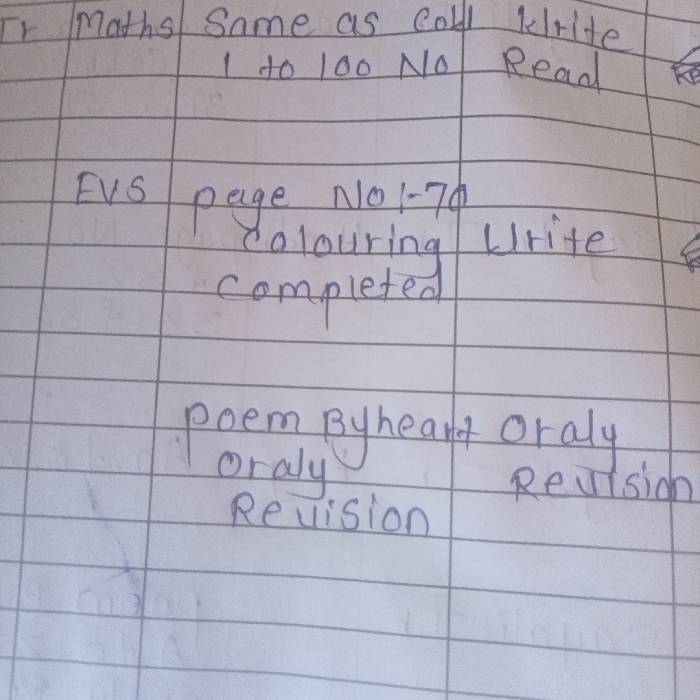 Ir Maths Same as Coll Write
1 to 100 No Read
EVS page No 1-70
Colouring Write
Completed
Poem Byheart Oraly
Oraly Revision
Revision